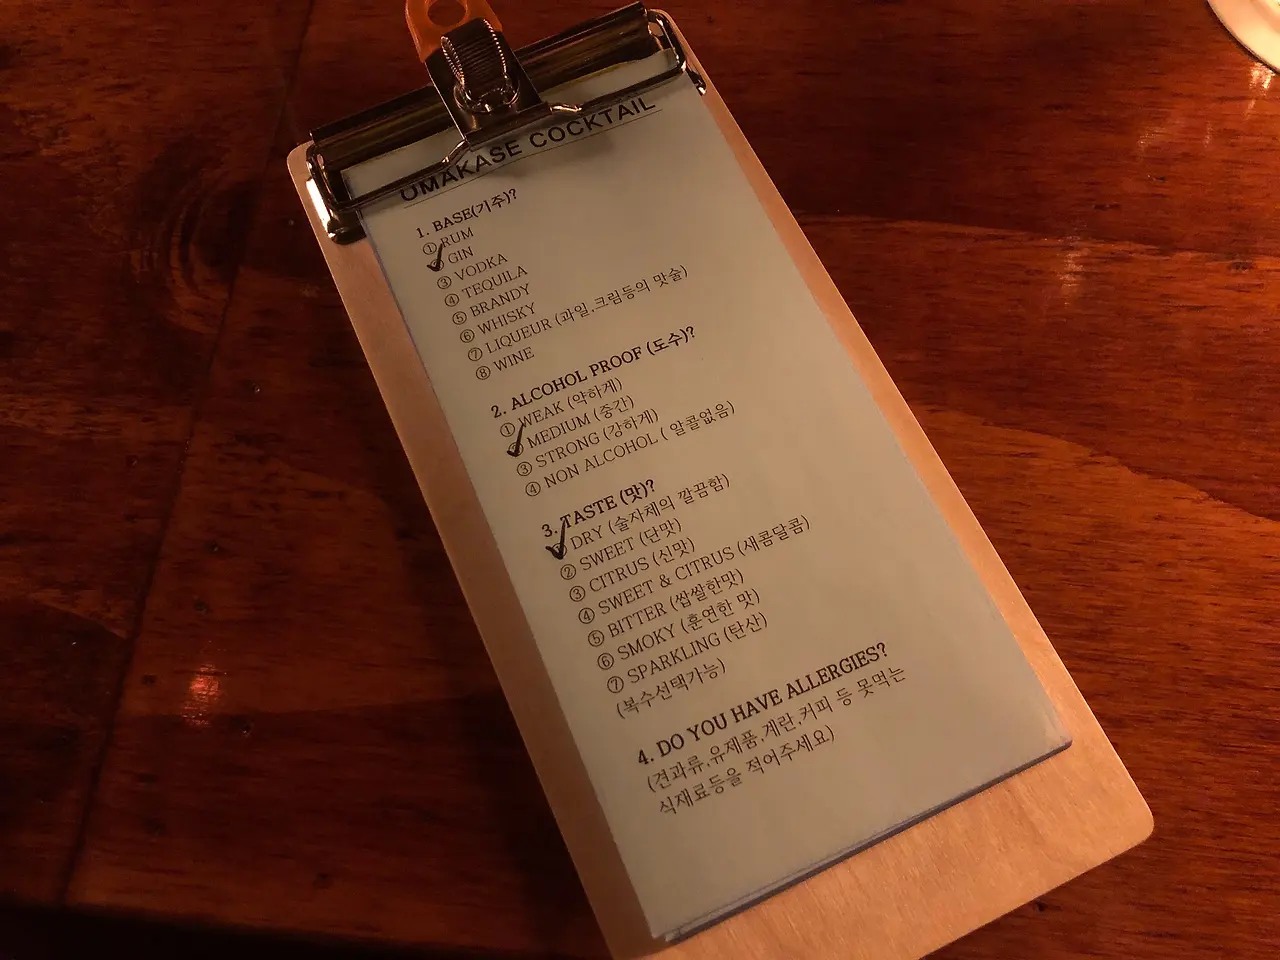 OMAKASE COCKTAIL
1. BASE(기주)?
① RUM
✓ GIN
③ VODKA
④ TEQUILA
⑤ BRANDY
⑥ WHISKY
⑦ LIQUEUR (과일,크림등의 맛술)
⑧ WINE
2. ALCOHOL PROOF (도수)?
① WEAK (약하게)
✓ MEDIUM (중간)
③ STRONG (강하게)
④ NON ALCOHOL ( 알콜없음)
3. TASTE (맛)?
✓ DRY (술자체의 깔끔함)
② SWEET (단맛)
③ CITRUS (신맛)
④ SWEET & CITRUS (새콤달콤)
⑤ BITTER (쌉쌀한맛)
⑥ SMOKY (훈연한 맛)
⑦ SPARKLING (탄산)
(복수선택가능)
4. DO YOU HAVE ALLERGIES?
(견과류,유제품,계란,커피 등 못먹는
식재료등을 적어주세요)